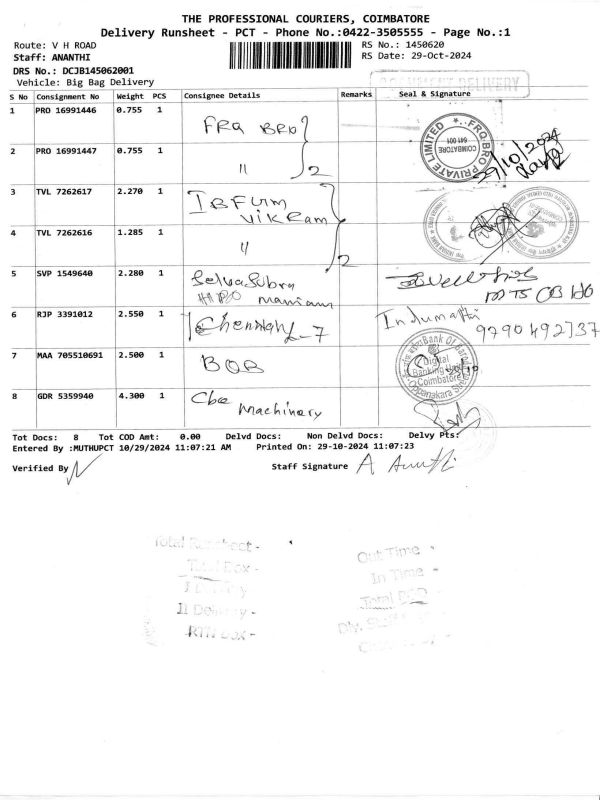 THE PROFESSIONAL COURIERS, COIMBATORE
Delivery Runsheet - PCT - Phone No.:0422-3505555 - Page No.:1
Route: V H ROAD
RS No.: 1450620
Staff: ANANTHI
RS Date: 29-Oct-2024
DRS No.: DCJB145062001
Vehicle: Big Bag Delivery
DOCUMENT DELIVERY
S No Consignment No Weight PCS Consignee Details Remarks Seal & Signature
1 PRO 16991446 0.755 1 FRQ BRO
FRQ BRO PRIVATE LIMITED
COIMBATORE
641 001
29/10/2024
2 PRO 16991447 0.755 1 " 2
3 TVL 7262617 2.270 1
Vikram
4 TVL 7262616 1.285 1 " 2
5 SVP 1549640 2.280 1 Selvasubra
maniam
6 RJP 3391012 2.550 1 Chennai - 7 Indumathi
9790492737
7 MAA 705510691 2.500 1 BOB
Bank Of Baroda
Digital
Banking Unit
Coimbatore
Oppanakara Street
8 GDR 5359940 4.300 1 Cbe
Machinery
Tot Docs: 8 Tot COD Amt: 0.00 Delvd Docs: Non Delvd Docs: Delvy Pts:
Entered By :MUTHUPCT 10/29/2024 11:07:21 AM Printed On: 29-10-2024 11:07:23
Verified By
Staff Signature A Ananthi
Total Runsheet -
Total Box -
I Delivery
II Delivery -
RTN Box -
Out Time -
In Time -
Total POD -